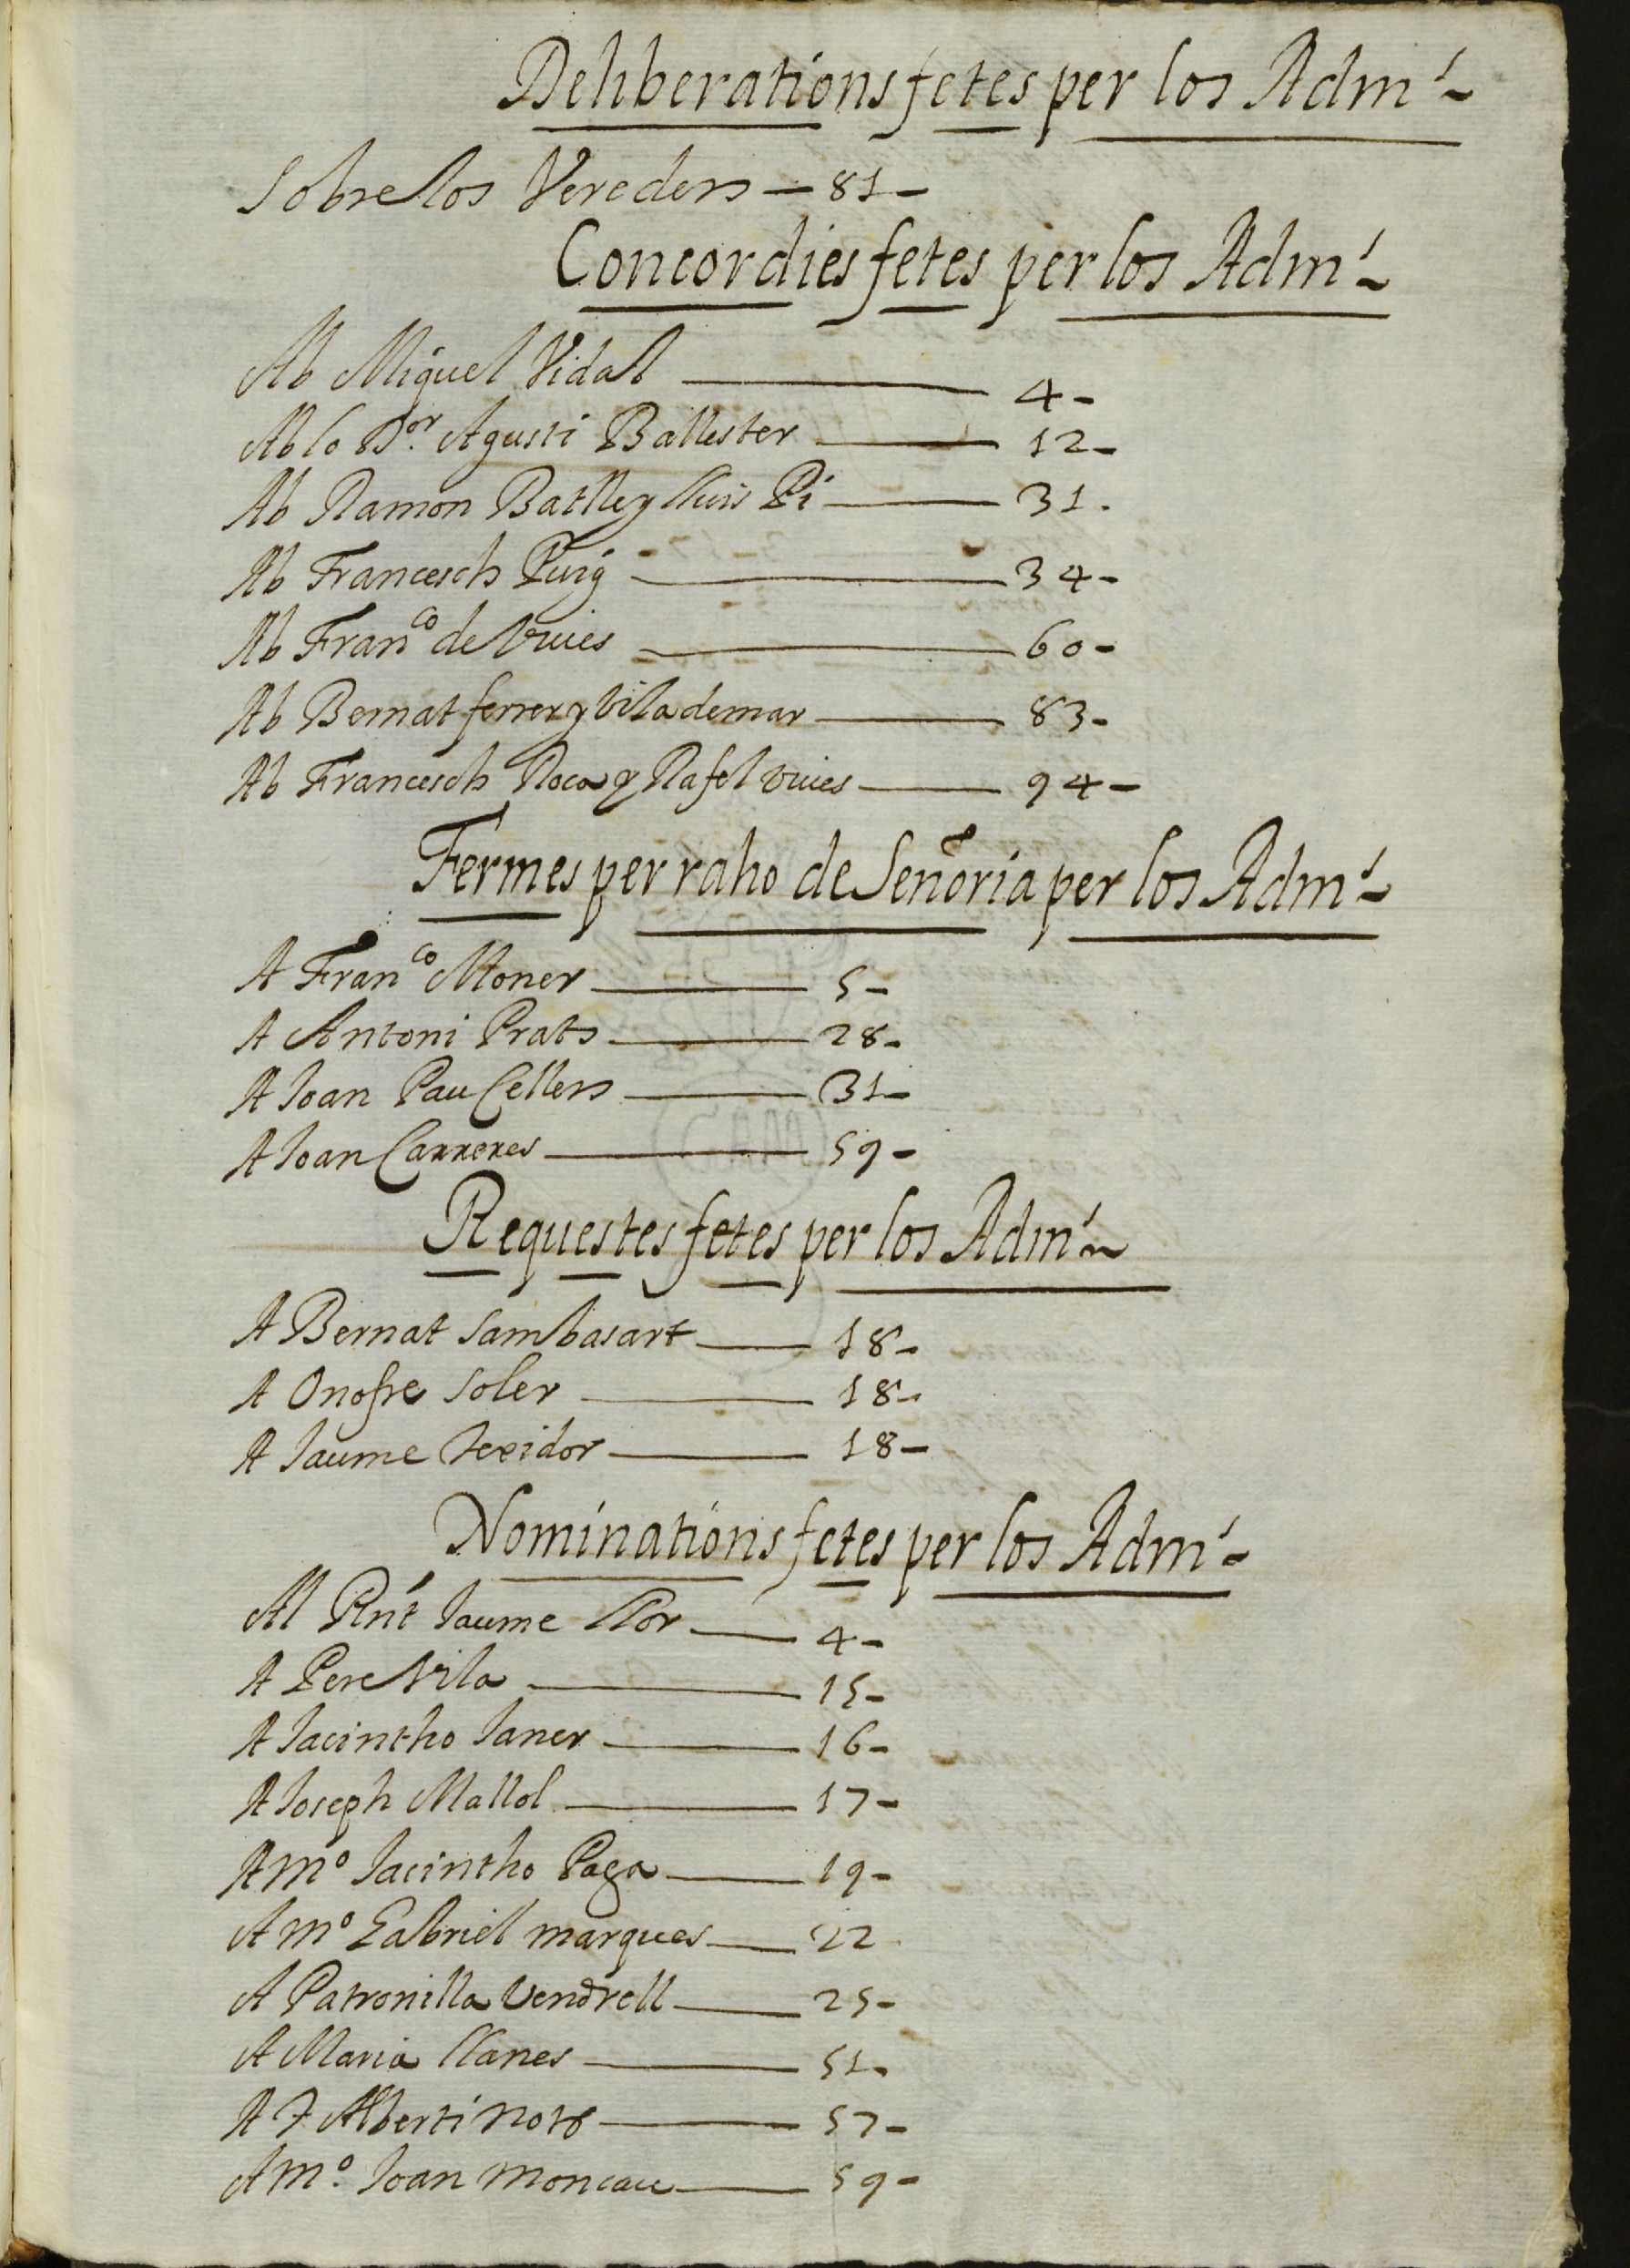 Deliberations fetes per los Adm.
Sobre los Vereders — 81 —
Concordies fetes per los Adm.
Ab Miquel Vidal — 4 -
Ab lo Dor. Agusti Ballester — 12 -
Ab Ramon Batlle y lluis Pi — 31.
Ab Francesch Puig — 34 -
Ab Franco de Viuies — 60 -
Ab Bernat ferrer y Vilademar — 83 -
Ab Francesch Roca y Rafel viuies — 94 -
Fermes per raho de Señoria per los Adm.
A Franco Moner — 5 -
A Antoni Prats — 28 -
A Joan Pau Cellers — 31 -
A Joan Carreres — 59 -
Requestes fetes per los Adm.
A Bernat Sambasart — 18 -
A Onofre Soler — 18 -
A Jaume Texidor — 18 -
Nominations fetes per los Adm.
Al Rnt Jaume llor — 4 -
A Pere Vila — 15 -
A Jacintho Janer — 16 -
A Joseph Mallol — 17 -
A Mo Jacintho Paga — 19 -
A Mo Gabriel marques — 22
A Patronilla Vendrell — 25 -
A Maria llanes — 51 -
A F Alberti Notr — 57 -
A Mo. Joan moncau — 59 -